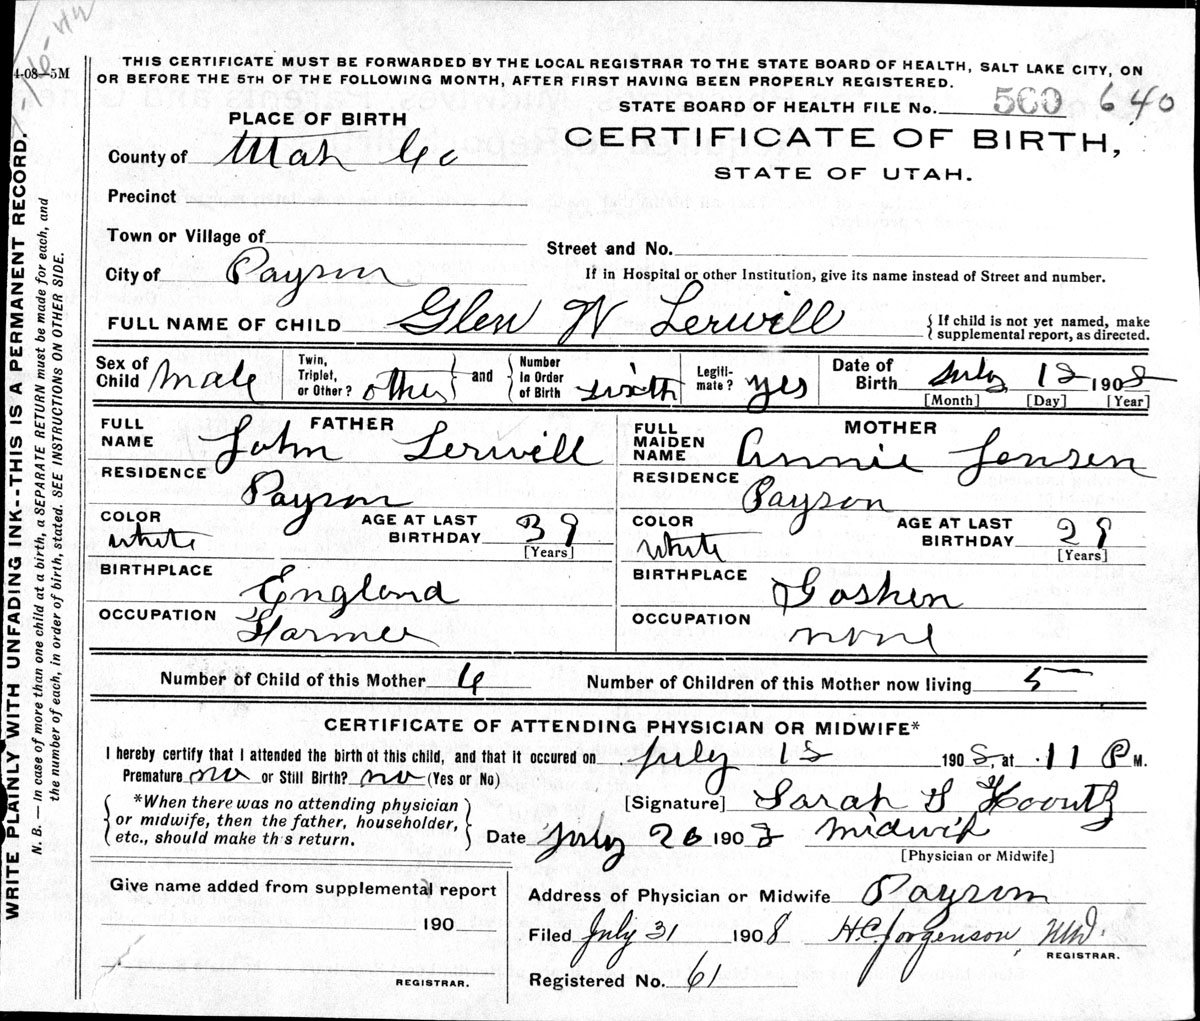 4-08—5M
THIS CERTIFICATE MUST BE FORWARDED BY THE LOCAL REGISTRAR TO THE STATE BOARD OF HEALTH, SALT LAKE CITY, ON
OR BEFORE THE 5TH OF THE FOLLOWING MONTH, AFTER FIRST HAVING BEEN PROPERLY REGISTERED.
STATE BOARD OF HEALTH FILE No. 560 640
PLACE OF BIRTH
CERTIFICATE OF BIRTH,
STATE OF UTAH.
County of Utah Co
Precinct
Town or Village of
Street and No.
City of Payson
If in Hospital or other Institution, give its name instead of Street and number.
FULL NAME OF CHILD Glen W Lerwill { If child is not yet named, make supplemental report, as directed.
Sex of Child Male Twin, Triplet, or Other? other } and { Number In Order of Birth sixth Legitimate? yes Date of Birth July 12 1908
[Month] [Day] [Year]
FATHER
FULL NAME John Lerwill
RESIDENCE Payson
COLOR white AGE AT LAST BIRTHDAY 39 [Years]
BIRTHPLACE England
OCCUPATION Farmer
MOTHER
FULL MAIDEN NAME Annie Jensen
RESIDENCE Payson
COLOR white AGE AT LAST BIRTHDAY 29 [Years]
BIRTHPLACE Goshen
OCCUPATION none
Number of Child of this Mother 6 Number of Children of this Mother now living 5
CERTIFICATE OF ATTENDING PHYSICIAN OR MIDWIFE*
I hereby certify that I attended the birth of this child, and that it occured on July 12 1908, at 11 P M.
Premature no or Still Birth? no (Yes or No)
{ *When there was no attending physician
or midwife, then the father, householder,
etc., should make this return. }
[Signature] Sarah S
Date July 26 1908 midwife
[Physician or Midwife]
Give name added from supplemental report
190
REGISTRAR.
Address of Physician or Midwife Payson
Filed July 31 1908 H.C. Jorgenson,
REGISTRAR.
Registered No. 61
WRITE PLAINLY WITH UNFADING INK--THIS IS A PERMANENT RECORD.
N. B. — In case of more than one child at a birth, a SEPARATE RETURN must be made for each, and
the number of each, in order of birth, stated. SEE INSTRUCTIONS ON OTHER SIDE.